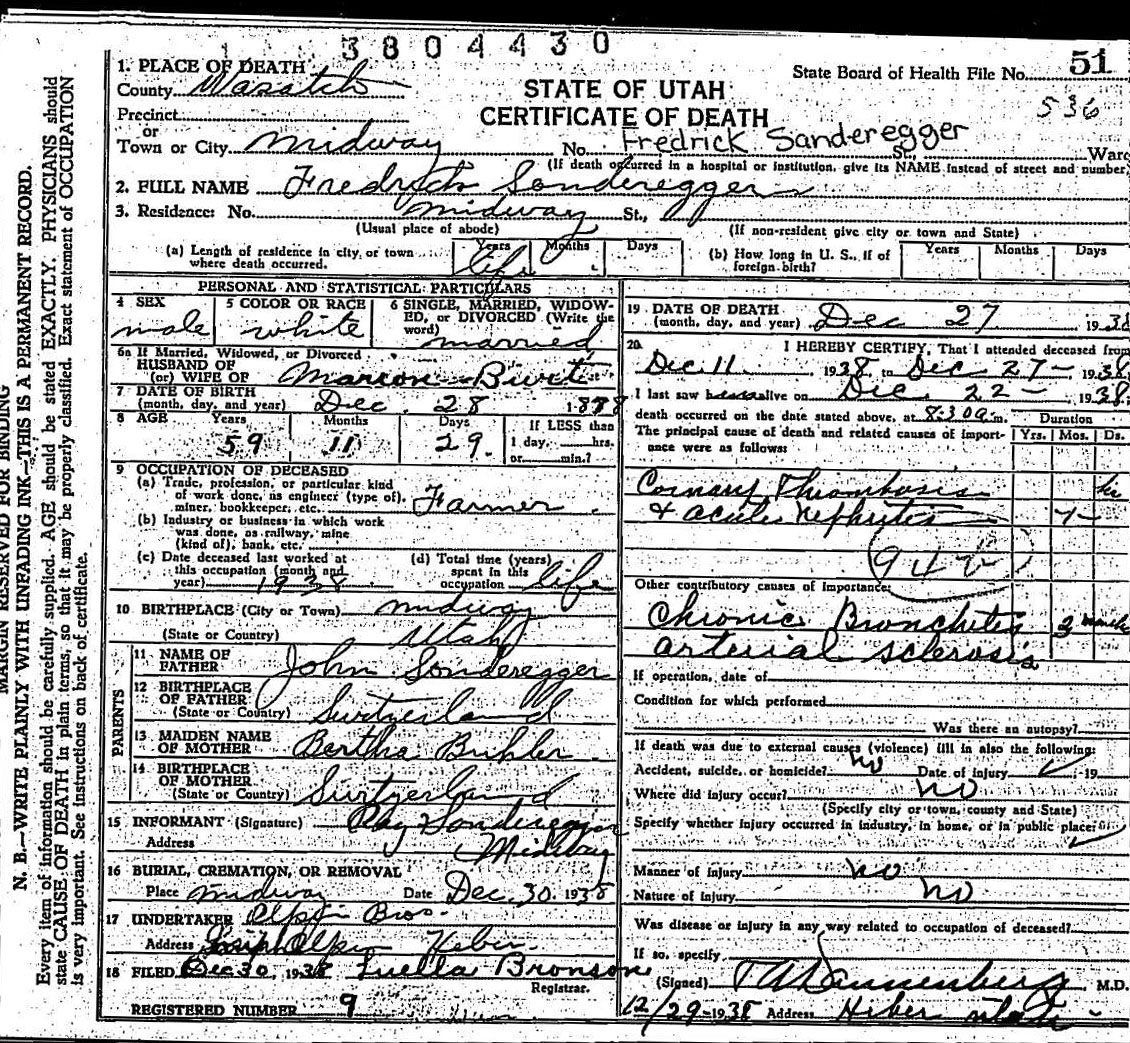 3804430
1. PLACE OF DEATH
State Board of Health File No. 51
County Wasatch
STATE OF UTAH
536
Precinct
CERTIFICATE OF DEATH
or
Town or City Midway No. Fredrick Sanderegger St., Ward
(If death occurred in a hospital or institution, give its NAME instead of street and number.
2. FULL NAME Fredrick Sonderegger
3. Residence: No. Midway St.,
(Usual place of abode) (If non-resident give city or town and State)
(a) Length of residence in city, or town where death occurred. Years Months Days
life
(b) How long in U. S., if of foreign birth? Years Months Days
PERSONAL AND STATISTICAL PARTICULARS
4 SEX
male
5 COLOR OR RACE
white
6 SINGLE, MARRIED, WIDOW-
ED, or DIVORCED (Write the
word)
married
6a If Married, Widowed, or Divorced
HUSBAND OF
(or) WIFE OF Marion
7 DATE OF BIRTH
(month, day, and year) Dec. 28 1878
8 AGE Years Months Days If LESS than
59 11 29 1 day, hrs.
or min.?
9 OCCUPATION OF DECEASED
(a) Trade, profession, or particular kind
of work done, as engineer (type of),
miner, bookkeeper, etc. Farmer
(b) Industry or business in which work
was done, as railway, mine
(kind of), bank, etc.
(c) Date deceased last worked at
this occupation (month and
year) 1938
(d) Total time (years)
spent in this
occupation life
10 BIRTHPLACE (City or Town) Midway
(State or Country) Utah
PARENTS
11 NAME OF
FATHER John Sonderegger
12 BIRTHPLACE
OF FATHER
(State or Country) Switzerland
13 MAIDEN NAME
OF MOTHER Bertha Buhler
14 BIRTHPLACE
OF MOTHER
(State or Country) Switzerland
15 INFORMANT (Signature) Ray Sonderegger
Address Midway
16 BURIAL, CREMATION, OR REMOVAL
Place Midway Date Dec. 30. 1938
17 UNDERTAKER Bros.
Address Heber
18 FILED Dec 30, 1938 Luella Bronson
Registrar.
REGISTERED NUMBER 9
19 DATE OF DEATH
(month, day, and year) Dec 27 1938
20 I HEREBY CERTIFY, That I attended deceased from
Dec. 11 1938, to Dec 27 - 1938
I last saw alive on Dec. 22 - 1938,
death occurred on the date stated above, at 8:30 a. m.
Duration
The principal cause of death and related causes of import-
ance were as follows: Yrs. Mos. Ds.
Coronary Thrombosis
& acute nephritis
942
Other contributory causes of importance:
Chronic Bronchitis 2 months
arterial sclerosis
If operation, date of
Condition for which performed
Was there an autopsy?
If death was due to external causes (violence) fill in also the following:
Accident, suicide, or homicide? no Date of injury 19
Where did injury occur? no
(Specify city or town, county and State)
Specify whether injury occurred in industry, in home, or in public place:
Manner of injury no
Nature of injury no
Was disease or injury in any way related to occupation of deceased?
If so, specify
(Signed) M.D.
12/29-1938 Address Heber Utah -
MARGIN RESERVED FOR BINDING
N. B.—WRITE PLAINLY WITH UNFADING INK—THIS IS A PERMANENT RECORD.
Every item of information should be carefully supplied. AGE should be stated EXACTLY. PHYSICIANS should
state CAUSE OF DEATH in plain terms, so that it may be properly classified. Exact statement of OCCUPATION
is very important. See instructions on back of certificate.